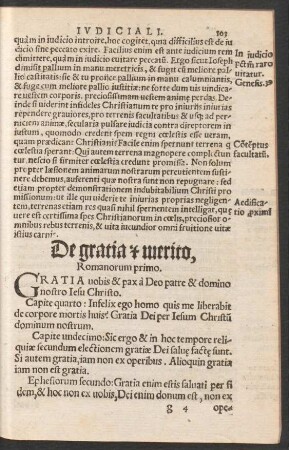 IVDICIALI. 103
qualm in iudicio introire, hoc cogitet, quia difficilius est de iu
dicio sine peccato exire. Facilius enim est ante iudicium rem
dimittere, quàm in iudicio euitare peccatũ. Ergo sicut Ioseph
dimisit pallium in manu meretricis, & fugit cũ meliore pal-
lio castitatis: sic & tu proijce pallium in manu calumniantis,
& fuge cum meliore pallio iustitiæ: ne forte dum vis vindica-
re vestem corporis, preciosissimam vestem animæ perdas. De
inde si uiderint infideles Christianum te pro iniurijs iniurias
rependere grauiores, pro terrenis facultatibus & usque ad per-
niciem animæ, secularia pulsare iudicia contra direptorem in
iustum, quomodo credent spem regni cœlestis esse ueram,
quam prædicant Christiani? Facile enim spernunt terrena q
cœlestia sperant. Qui autem terrena magnopere complectun
tur, nescio si firmiter cœlestia credunt promissa. Non solum
propter læsionem animarum nostrarum percutientem susti
nere debemus, auferenti quæ nostra sunt non repugnare: sed
etiam propter demonstrationem indubitabilem Christi pro
missionum: ut illi qui uiderit te iniurias proprias negligen-
tem, terrenas etiam res quasi nihil spernentem intelligat, quia
uere est certissima spes Christianorum in cœlis, preciosior o-
mnibus rebus terrenis, & vita iucundior omni fruitione vitæ
istius carnis.
In iudicio
pctm raro
uitatur.
Genesis.39
Cõtẽptus
facultatis.
Aedifica-
tio proximi
De gratia & merito,
Romanorum primo.
GRATIA uobis & pax à Deo patre & domino
nostro Iesu Christo.
Capite quarto: Infelix ego homo quis me liberabit
de corpore mortis huius? Gratia Dei per Iesum Christũ
dominum nostrum.
Capite undecimo: Sic ergo & in hoc tempore reli-
quiæ secundum electionem gratiæ Dei saluę factę sunt.
Si autem gratia, iam non ex operibus. Alioquin gratia
iam non est gratia.
Ephesiorum secundo: Gratia enim estis saluati per fi
dem, & hoc non ex uobis, Dei enim donum est, non ex
g 4 ope-